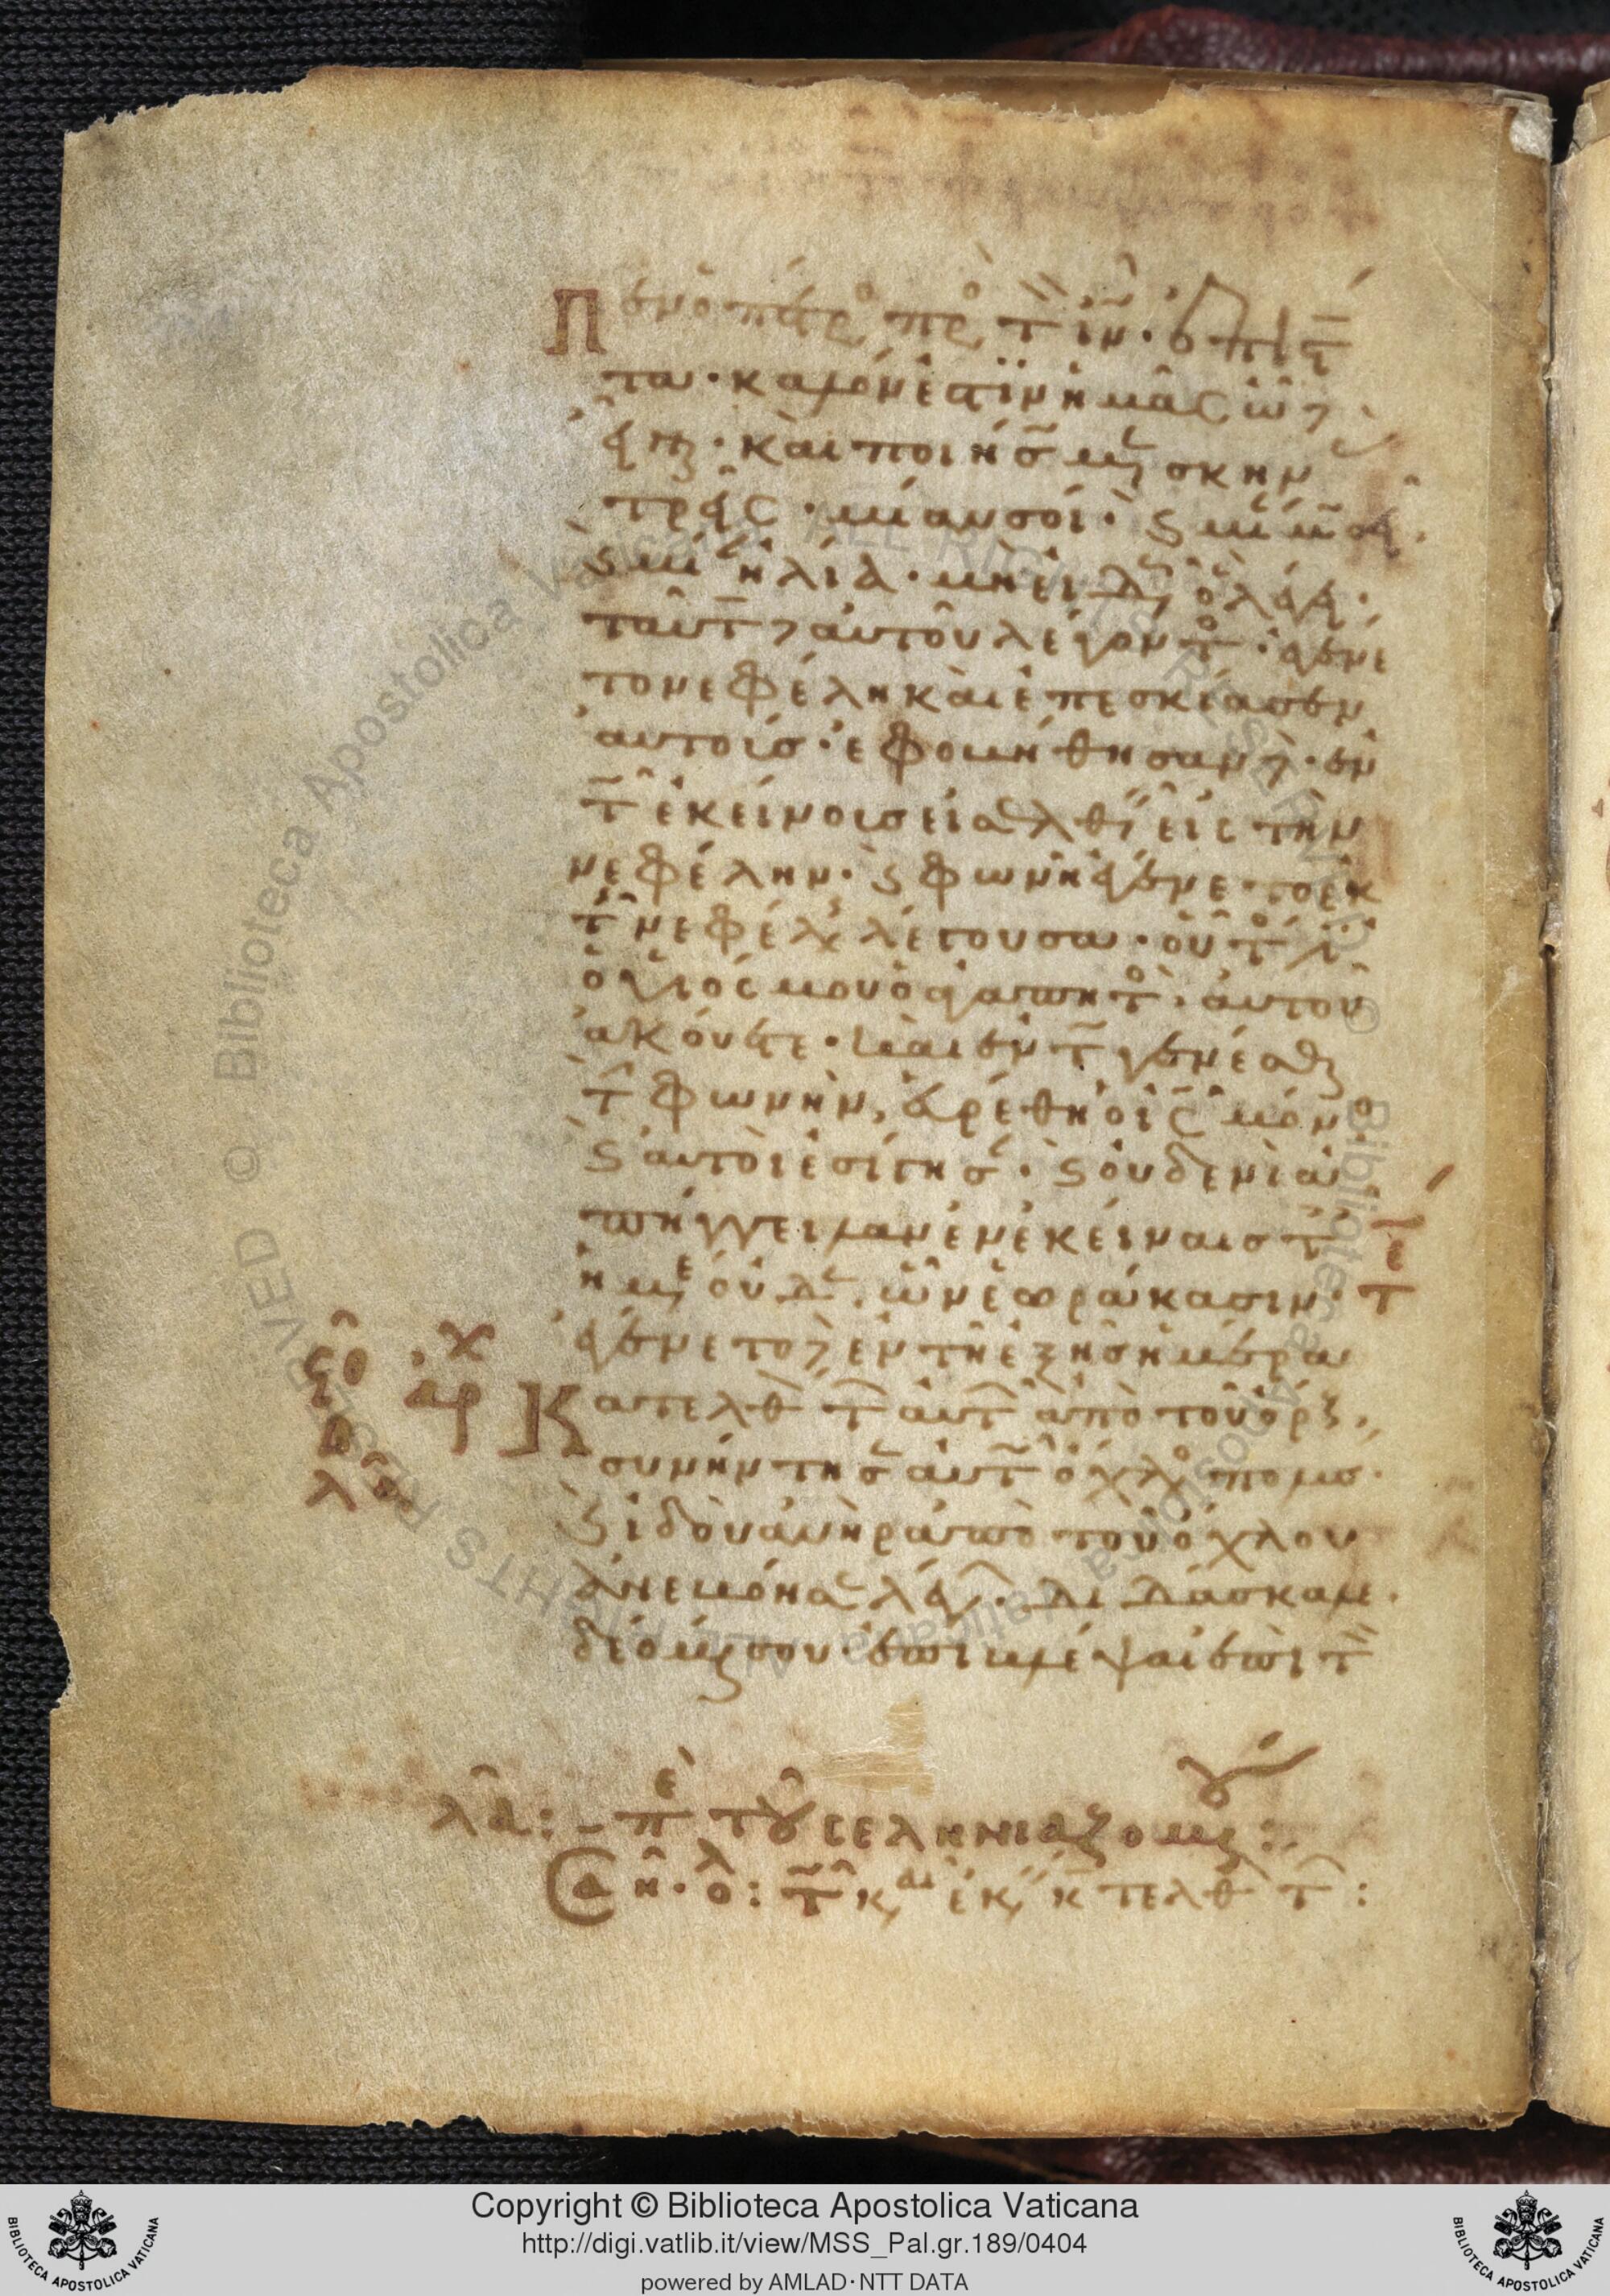 πεν ὁ πέτρος πρὸς τὸν ἰν· ἐπιστά
τα· καλόν ἐστιν ἡμᾶς ὧδε
εἶναι· καὶ ποιήσωμεν σκηνὰς
τρεῖς· μίαν σοί· καὶ μίαν μωσεῖ·
καὶ μίαν ἠλίᾳ· μὴ εἰδὼς ὃ λέγει·
ταῦτα δὲ αὐτοῦ λέγοντος· ἐγένε
το νεφέλη καὶ ἐπεσκίασεν
αὐτοίσ· ἐφοβήθησαν δὲ· ἐν
τῶ ἐκείνοις εἰσελθεῖν εἰς τὴν
νεφέλην· καὶ φωνὴ ἐγένετο ἐκ
τῆς νεφέλης λέγουσα· οὗτός ἐστιν
ὁ υἱός μου ὁ ἀγαπητὸς· αὐτοῦ
ἀκούετε· καὶ ἐν τῶ γενέσθαι
τὴν φωνὴν, εὑρέθη ὁ ἰς μόνος
καὶ αὐτοὶ ἐσίγησαν· καὶ οὐδενὶ ἀ
πήγγειλαν ἐν ἐκείναις ταῖς
ἡμέραις οὐδὲν ὧν ἑωράκασιν· τε
ἐγένετο δὲ ἐν τῆ ἑξῆς ἡμέρα
κατελθόντων αὐτῶν ἀπὸ τοῦ ὄρους,
συνήντησεν αὐτῶ ὄχλος πολύσ·
καὶ ἰδοὺ ἀνὴρ ἀπὸ τοῦ ὄχλου
ἀνεβόησε λέγων· διδάσκαλε·
δέομαί σου· ἐπίβλεψαι ἐπὶ τὸν
λα:- περὶ τοῦ σεληνιαζομένου:
τῶ καιρῶ ἐκείνω κατελθόντων:
Copyright © Biblioteca Apostolica Vaticana
http://digi.vatlib.it/view/MSS_Pal.gr.189/0404
powered by AMLAD·NTT DATA